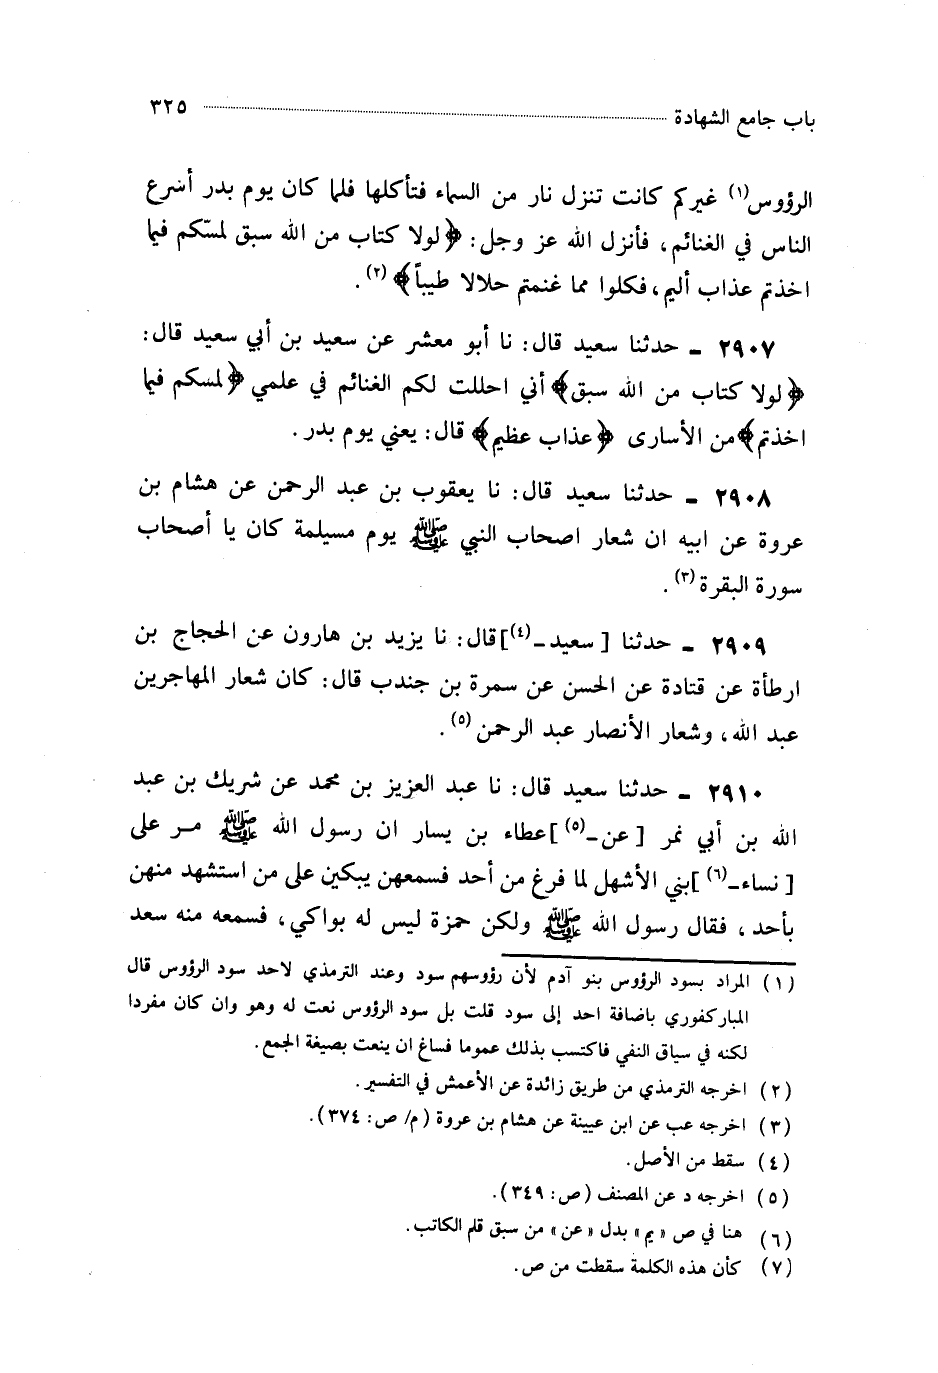 باب جامع الشهادة ٣٢٥
الرؤوس(١) غيركم كانت تنزل نار من السماء فتأكلها فلما كان يوم بدر أسرع
الناس في الغنائم، فأنزل الله عز وجل: ﴿لولا كتاب من الله سبق لمسّكم فيما
اخذتم عذاب أليم، فكلوا مما غنمتم حلالا طيباً﴾(٢).
٢٩٠٧ ـ حدثنا سعيد قال: نا أبو معشر عن سعيد بن أبي سعيد قال:
﴿لولا كتاب من الله سبق﴾ أني احللت لكم الغنائم في علمي ﴿لمسكم فيما
اخذتم﴾ من الأسارى ﴿عذاب عظيم﴾ قال: يعني يوم بدر.
٢٩٠٨ ـ حدثنا سعيد قال: نا يعقوب بن عبد الرحمن عن هشام بن
عروة عن ابيه ان شعار اصحاب النبي ﷺ يوم مسيلمة كان يا أصحاب
سورة البقرة(٣).
٢٩٠٩ ـ حدثنا [سعيد ـ(٤)] قال: نا يزيد بن هارون عن الحجاج بن
ارطأة عن قتادة عن الحسن عن سمرة بن جندب قال: كان شعار المهاجرين
عبد الله، وشعار الأنصار عبد الرحمن(٥).
٢٩١٠ ـ حدثنا سعيد قال: نا عبد العزيز بن محمد عن شريك بن عبد
الله بن أبي نمر [عن ـ(٥)] عطاء بن يسار ان رسول الله ﷺ مـر على
[نساء ـ(٦)] بني الأشهل لما فرغ من أحد فسمعهن يبكين على من استشهد منهن
بأحد، فقال رسول الله ﷺ ولكن حمزة ليس له بواكي، فسمعه منه سعد
(١) المراد بسود الرؤوس بنو آدم لأن رؤوسهم سود وعند الترمذي لاحد سود الرؤوس قال
المباركفوري باضافة احد إلى سود قلت بل سود الرؤوس نعت له وهو وان كان مفردا
لكنه في سياق النفي فاكتسب بذلك عموما فساغ ان ينعت بصيغة الجمع.
(٢) اخرجه الترمذي من طريق زائدة عن الأعمش في التفسير.
(٣) اخرجه عب عن ابن عيينة عن هشام بن عروة (م/ ص: ٣٧٤).
(٤) سقط من الأصل.
(٥) اخرجه د عن المصنف (ص: ٣٤٩).
(٦) هنا في ص «يم» بدل «عن» من سبق قلم الكاتب.
(٧) كأن هذه الكلمة سقطت من ص.